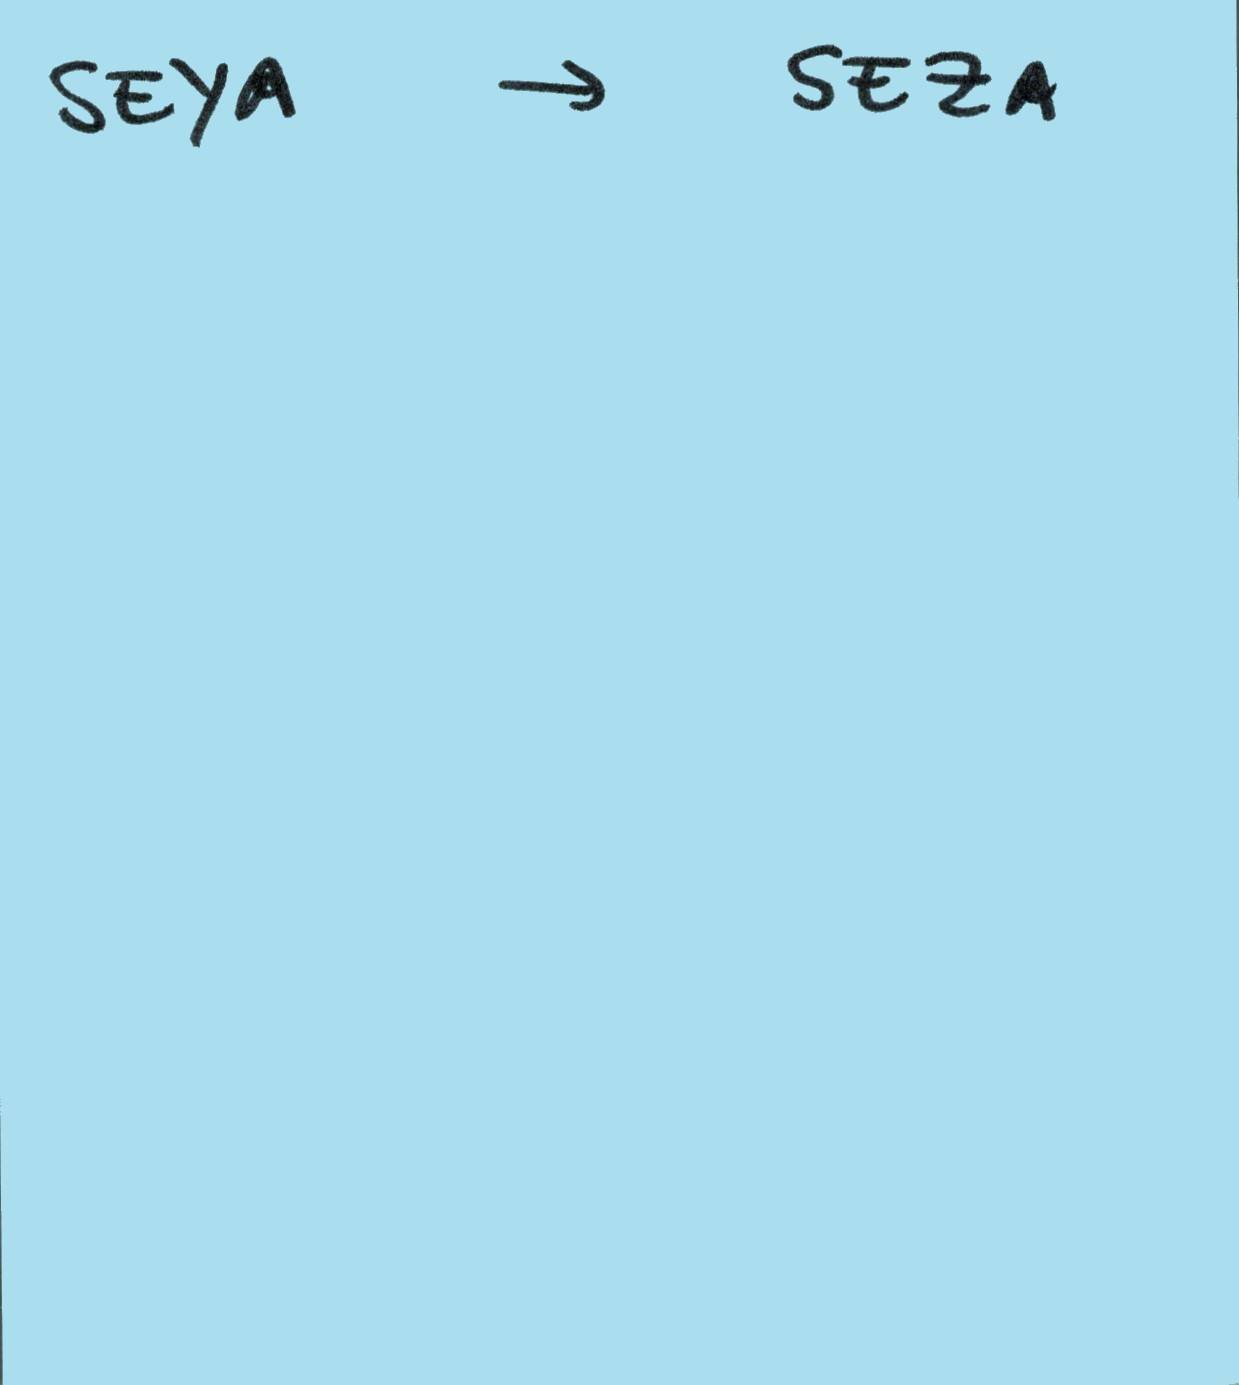 SEYA → SEZA